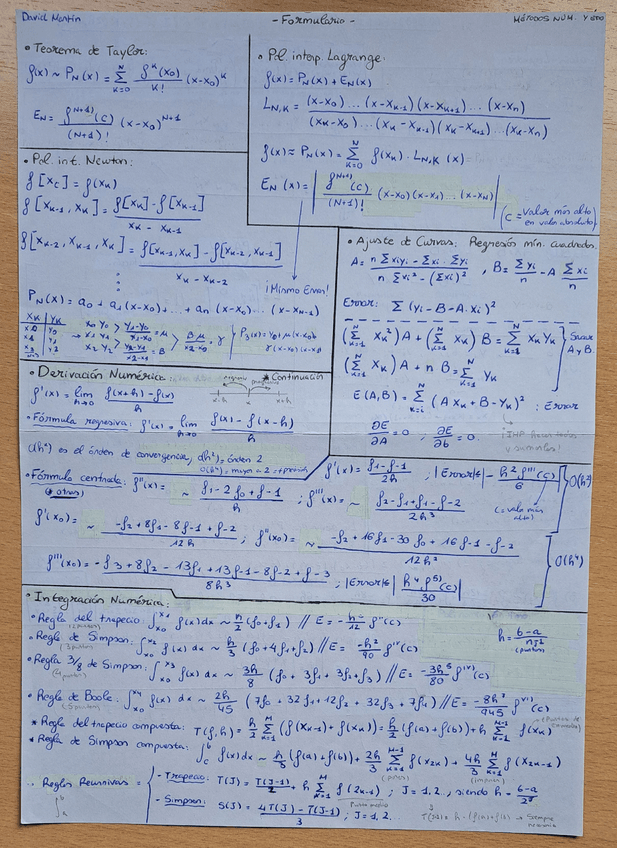 David Martín
- Formulario -
MÉTODOS NUM. Y EDO
• Teorema de Taylor:
f(x) ~ P_N(x) = Σ_{k=0}^{N} f^k(x_0)/k! (x-x_0)^k
E_N = f^{N+1)}(c)/(N+1)! (x-x_0)^{N+1}
• Pol. interp. Lagrange:
f(x) = P_N(x) + E_N(x)
L_{N,K} = (x-x_0)...(x-x_{k-1})(x-x_{k+1})...(x-x_n) / (x_k-x_0)...(x_k-x_{k-1})(x_k-x_{k+1})...(x_k-x_n)
f(x) ≈ P_N(x) = Σ_{k=0}^{N} f(x_k) · L_{N,K}(x)
E_N(x) = | f^{N+1)}(c)/(N+1)! (x-x_0)(x-x_1)...(x-x_N) |
(c = valor más alto en valor absoluto)
• Pol. int. Newton:
f[x_k] = f(x_k)
f[x_{k-1}, x_k] = f[x_k] - f[x_{k-1}] / x_k - x_{k-1}
f[x_{k-2}, x_{k-1}, x_k] = f[x_{k-1}, x_k] - f[x_{k-2}, x_{k-1}] / x_k - x_{k-2}
¡Mismo Error!
P_N(x) = a_0 + a_1(x-x_0) + ... + a_n(x-x_0)...(x-x_{N-1})
x_k | y_k
• Ajuste de Curvas: Regresión mín. cuadrados
A = n Σx_iy_i - Σx_i · Σy_i / n Σx_i² - (Σx_i)² , B = Σy_i/n - A Σx_i/n
Error: Σ (y_i - B - A x_i)²
(Σ_{k=1}^{N} x_k²) A + (Σ_{k=1}^{N} x_k) B = Σ_{k=1}^{N} x_k y_k
(Σ_{k=1}^{N} x_k) A + n B = Σ_{k=1}^{N} y_k
Sacar A y B
E(A,B) = Σ (A x_k + B - y_k)² : Error
∂E/∂A = 0 ; ∂E/∂b = 0
• Derivación Numérica:
* Continuación
f'(x) = lim_{h→0} f(x+h) - f(x) / h
• Fórmula regresiva: f'(x) = lim_{h→0} f(x) - f(x-h) / h
O(h^n) es el órden de convergencia, O(h²) = órden 2
• Fórmula centrada:
(+ otras)
f'(x) = f_1 - f_{-1} / 2h , |Error| ≤ | - h² f'''(c) / 6 | O(h²)
f''(x) = ~ f_1 - 2f_0 + f_{-1} / h ; f'''(x) = ~ f_2 - f_1 + f_{-1} - f_{-2} / 2h³
(c = valor más alto)
f'(x_0) = ~ -f_2 + 8f_1 - 8f_{-1} + f_{-2} / 12h ; f''(x_0) = ~ -f_2 + 16f_1 - 30f_0 + 16f_{-1} - f_{-2} / 12h²
f'''(x_0) = ~ -f_3 + 8f_2 - 13f_1 + 13f_{-1} - 8f_{-2} + f_{-3} / 8h³ ; |Error| ≤ | h⁴ f^{5)}(c) / 30 | O(h⁴)
• Integración Numérica:
• Regla del trapecio: ∫_{x_0}^{x_1} f(x)dx ~ h/2 (f_0+f_1) // E = -h³/12 f''(c)
(2 puntos)
• Regla de Simpson: ∫_{x_0}^{x_2} f(x)dx ~ h/3 (f_0+4f_1+f_2) // E = -h⁵/90 f^{IV)}(c)
(3 puntos)
• Regla 3/8 de Simpson: ∫_{x_0}^{x_3} f(x) dx ~ 3h/8 (f_0 + 3f_1 + 3f_2 + f_3) // E = -3h⁵/80 f^{IV)}(c)
(4 puntos)
• Regla de Boole: ∫_{x_0}^{x_4} f(x) dx ~ 2h/45 (7f_0 + 32f_1 + 12f_2 + 32f_3 + 7f_4) // E = -8h⁷/945 f^{VI)}(c)
(5 puntos)
* Regla del trapecio compuesta: T(f,h) = h/2 Σ_{k=1}^{M} (f(x_{k-1}) + f(x_k)) = h/2 (f(a)+f(b)) + h Σ_{k=1}^{M-1} f(x_k)
* Regla de Simpson compuesta: ∫ f(x)dx ~ h/3 (f(a)+f(b)) + 2h/3 Σ_{k=1}^{M-1} f(x_{2k}) + 4h/3 Σ_{k=1}^{M} f(x_{2k-1})
(pares)
(impares)
Reglas Recursivas =
- Trapecio: T(J) = T(J-1)/2 + h Σ_{k=1}^{M} f(2k-1) ; J = 1, 2.., siendo h = b-a/2^J
- Simpson: S(J) = 4T(J) - T(J-1) / 3 ; J = 1, 2...